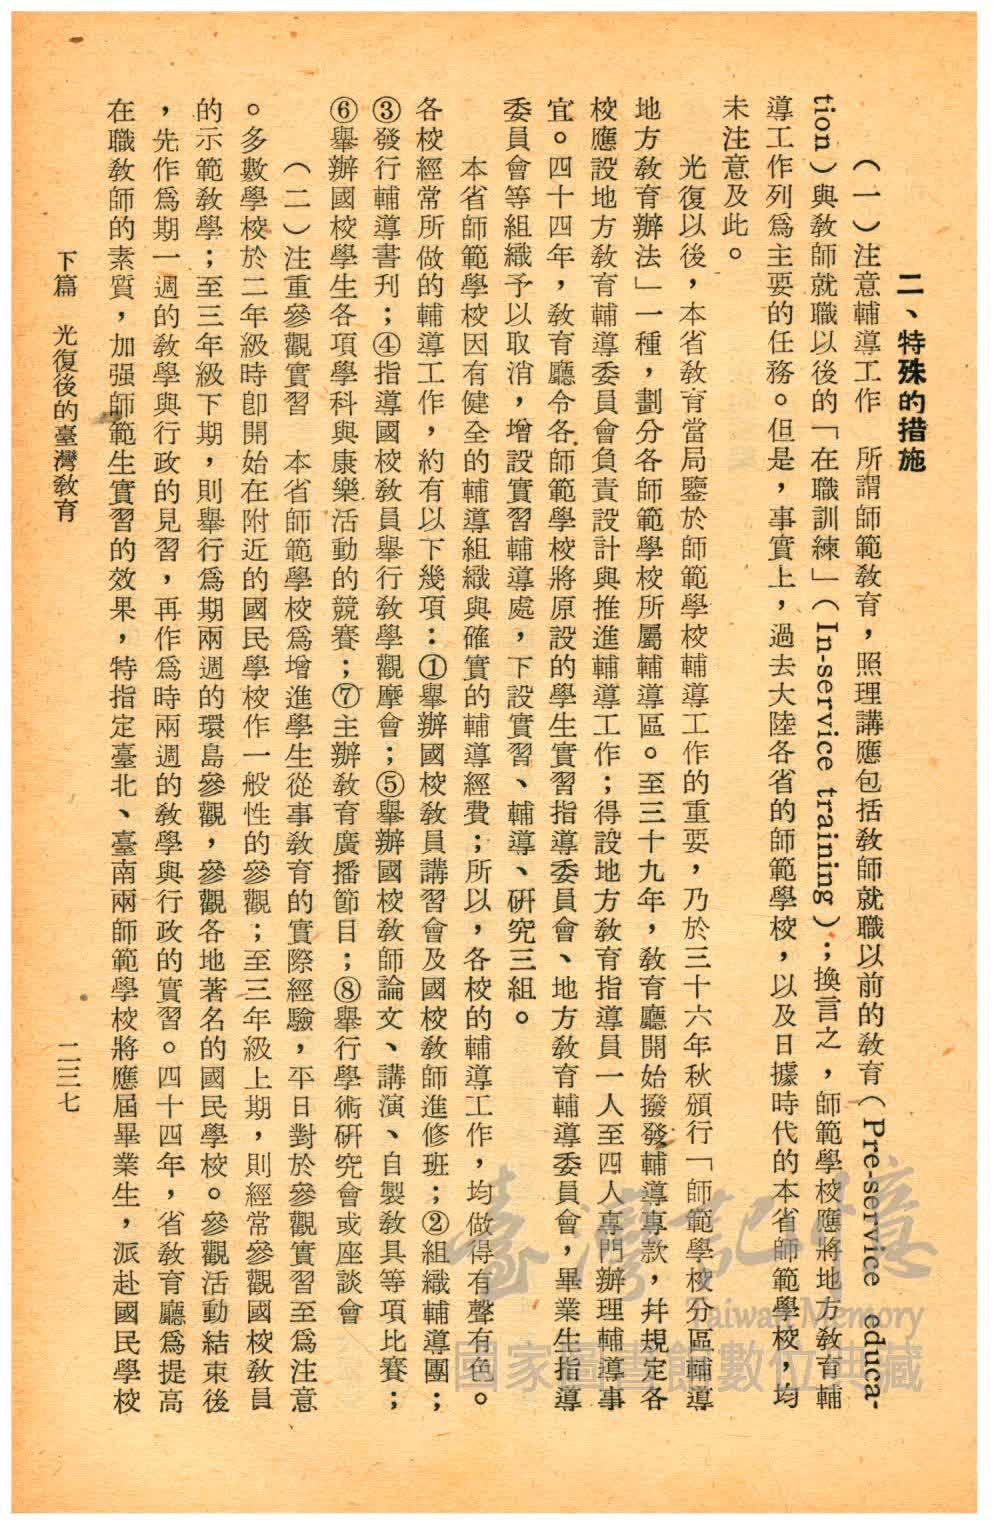 二、特殊的措施
（一）注意輔導工作　所謂師範教育，照理講應包括教師就職以前的教育（Pre-service educa-
tion）與教師就職以後的「在職訓練」（In-service training）；換言之，師範學校應將地方教育輔
導工作列爲主要的任務。但是，事實上，過去大陸各省的師範學校，以及日據時代的本省師範學校，均
未注意及此。
光復以後，本省教育當局鑒於師範學校輔導工作的重要，乃於三十六年秋頒行「師範學校分區輔導
地方教育辦法」一種，劃分各師範學校所屬輔導區。至三十九年，教育廳開始撥發輔導專款，幷規定各
校應設地方教育輔導委員會負責設計與推進輔導工作；得設地方教育指導員一人至四人專門辦理輔導事
宜。四十四年，教育廳令各師範學校將原設的學生實習指導委員會、地方教育輔導委員會，畢業生指導
委員會等組織予以取消，增設實習輔導處，下設實習、輔導、研究三組。
本省師範學校因有健全的輔導組織與確實的輔導經費；所以，各校的輔導工作，均做得有聲有色。
各校經常所做的輔導工作，約有以下幾項：①舉辦國校教員講習會及國校教師進修班；②組織輔導團；
③發行輔導書刊；④指導國校教員舉行教學觀摩會；⑤舉辦國校教師論文、講演、自製教具等項比賽；
⑥舉辦國校學生各項學科與康樂活動的競賽；⑦主辦教育廣播節目；⑧舉行學術研究會或座談會
（二）注重參觀實習　本省師範學校爲增進學生從事教育的實際經驗，平日對於參觀實習至爲注意
。多數學校於二年級時卽開始在附近的國民學校作一般性的參觀；至三年級上期，則經常參觀國校教員
的示範教學；至三年級下期，則舉行爲期兩週的環島參觀，參觀各地著名的國民學校。參觀活動結束後
，先作爲期一週的教學與行政的見習，再作爲時兩週的教學與行政的實習。四十四年，省教育廳爲提高
在職教師的素質，加强師範生實習的效果，特指定臺北、臺南兩師範學校將應屆畢業生，派赴國民學校
下篇　光復後的臺灣教育
二三七
臺灣記憶
Taiwan Memory
國家圖書館數位典藏